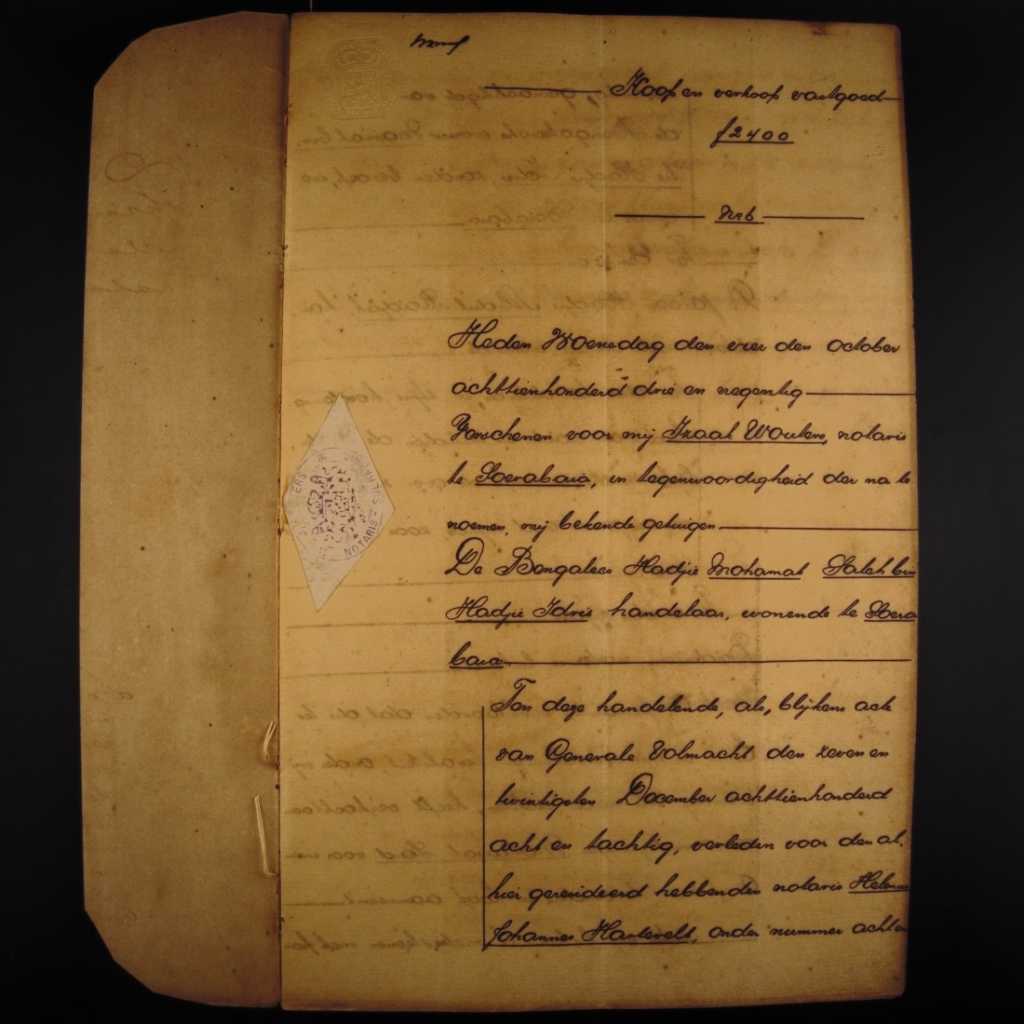 Koop en verkoop vastgoed
f 2400
No 6
Heden Woensdag den vier den october
achttienhonderd drie en negentig
Verschenen voor mij Izaak Wouters, notaris
te Soerabaia, in tegenwoordigheid der na te
noemen, mij bekende getuigen
De Bengalees Hadjie Mohamat Saleh bin
Hadjie Idris handelaar, wonende te Soera
baia
Ten deze handelende, als, blijkens acte
van Generale Volmacht den zeven en
twintigsten December achttienhonderd
acht en tachtig, verleden voor den al,
hier geresideerd hebbenden notaris
Johannes Hartevelt, onder nummer achten
NOTARIS